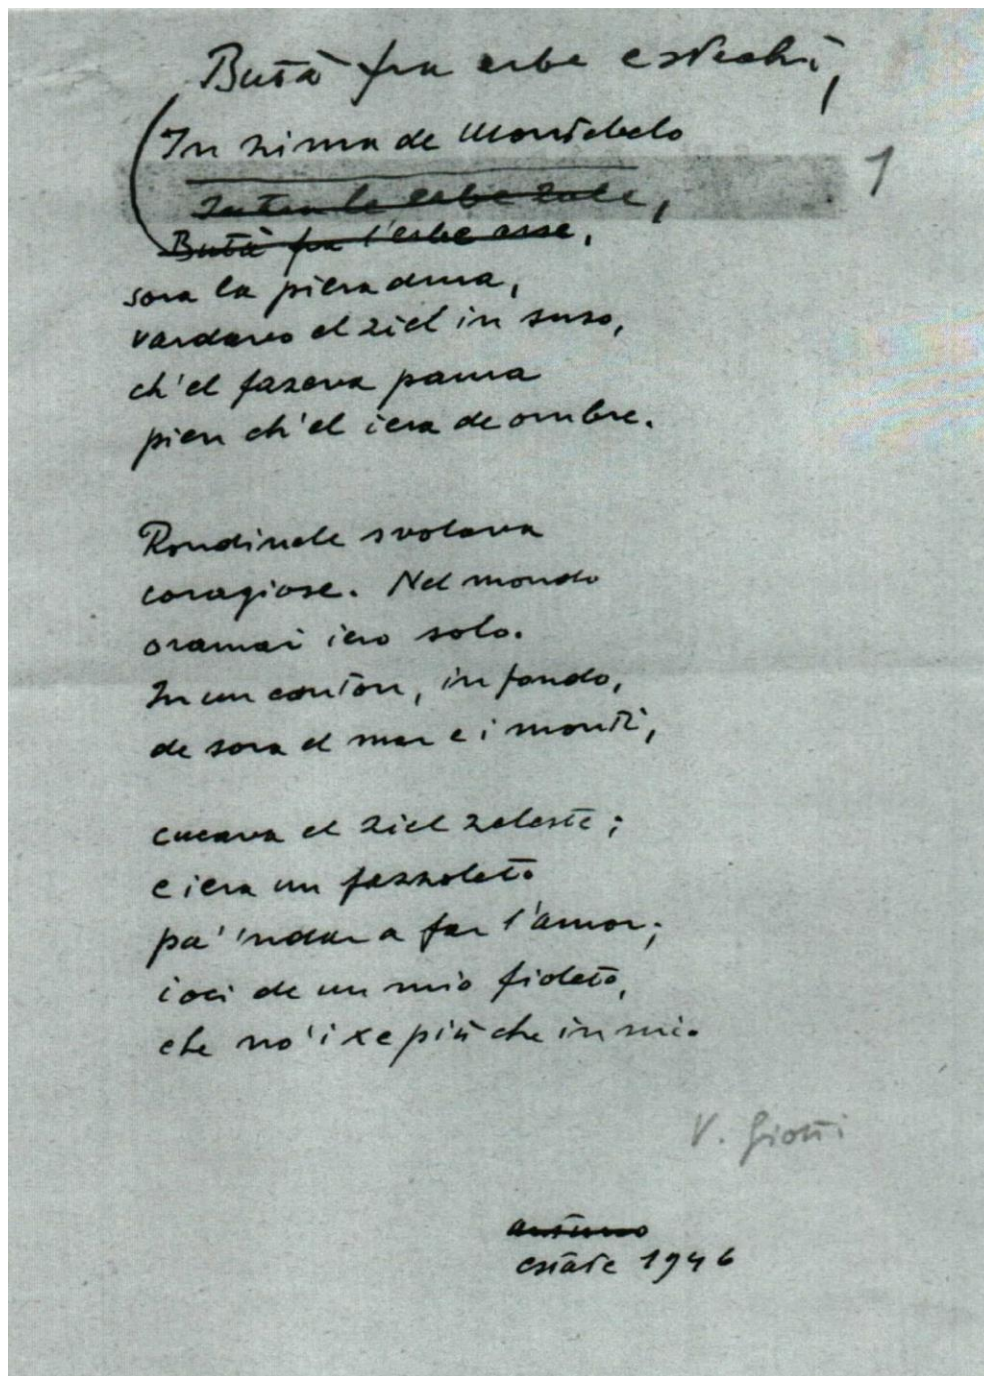 Butà fra erbe e stechi,
In zima de Montebelo
1
Butà fra l'erbe arse,
sora la piera dura,
vardavo el ziel in suso,
ch'el fazeva paura
pien ch'el iera de ombre.
Rondinele svolava
coragiose. Nel mondo
oramai iero solo.
In un canton, in fondo,
de sora el mar e i monti,
cucava el ziel zeleste;
e iera un fazzoleto
pa' 'ndar a far l'amor;
i oci de un mio fioleto,
che no' i xe più che in mi.
V. Giotti
autunno
estate 1946